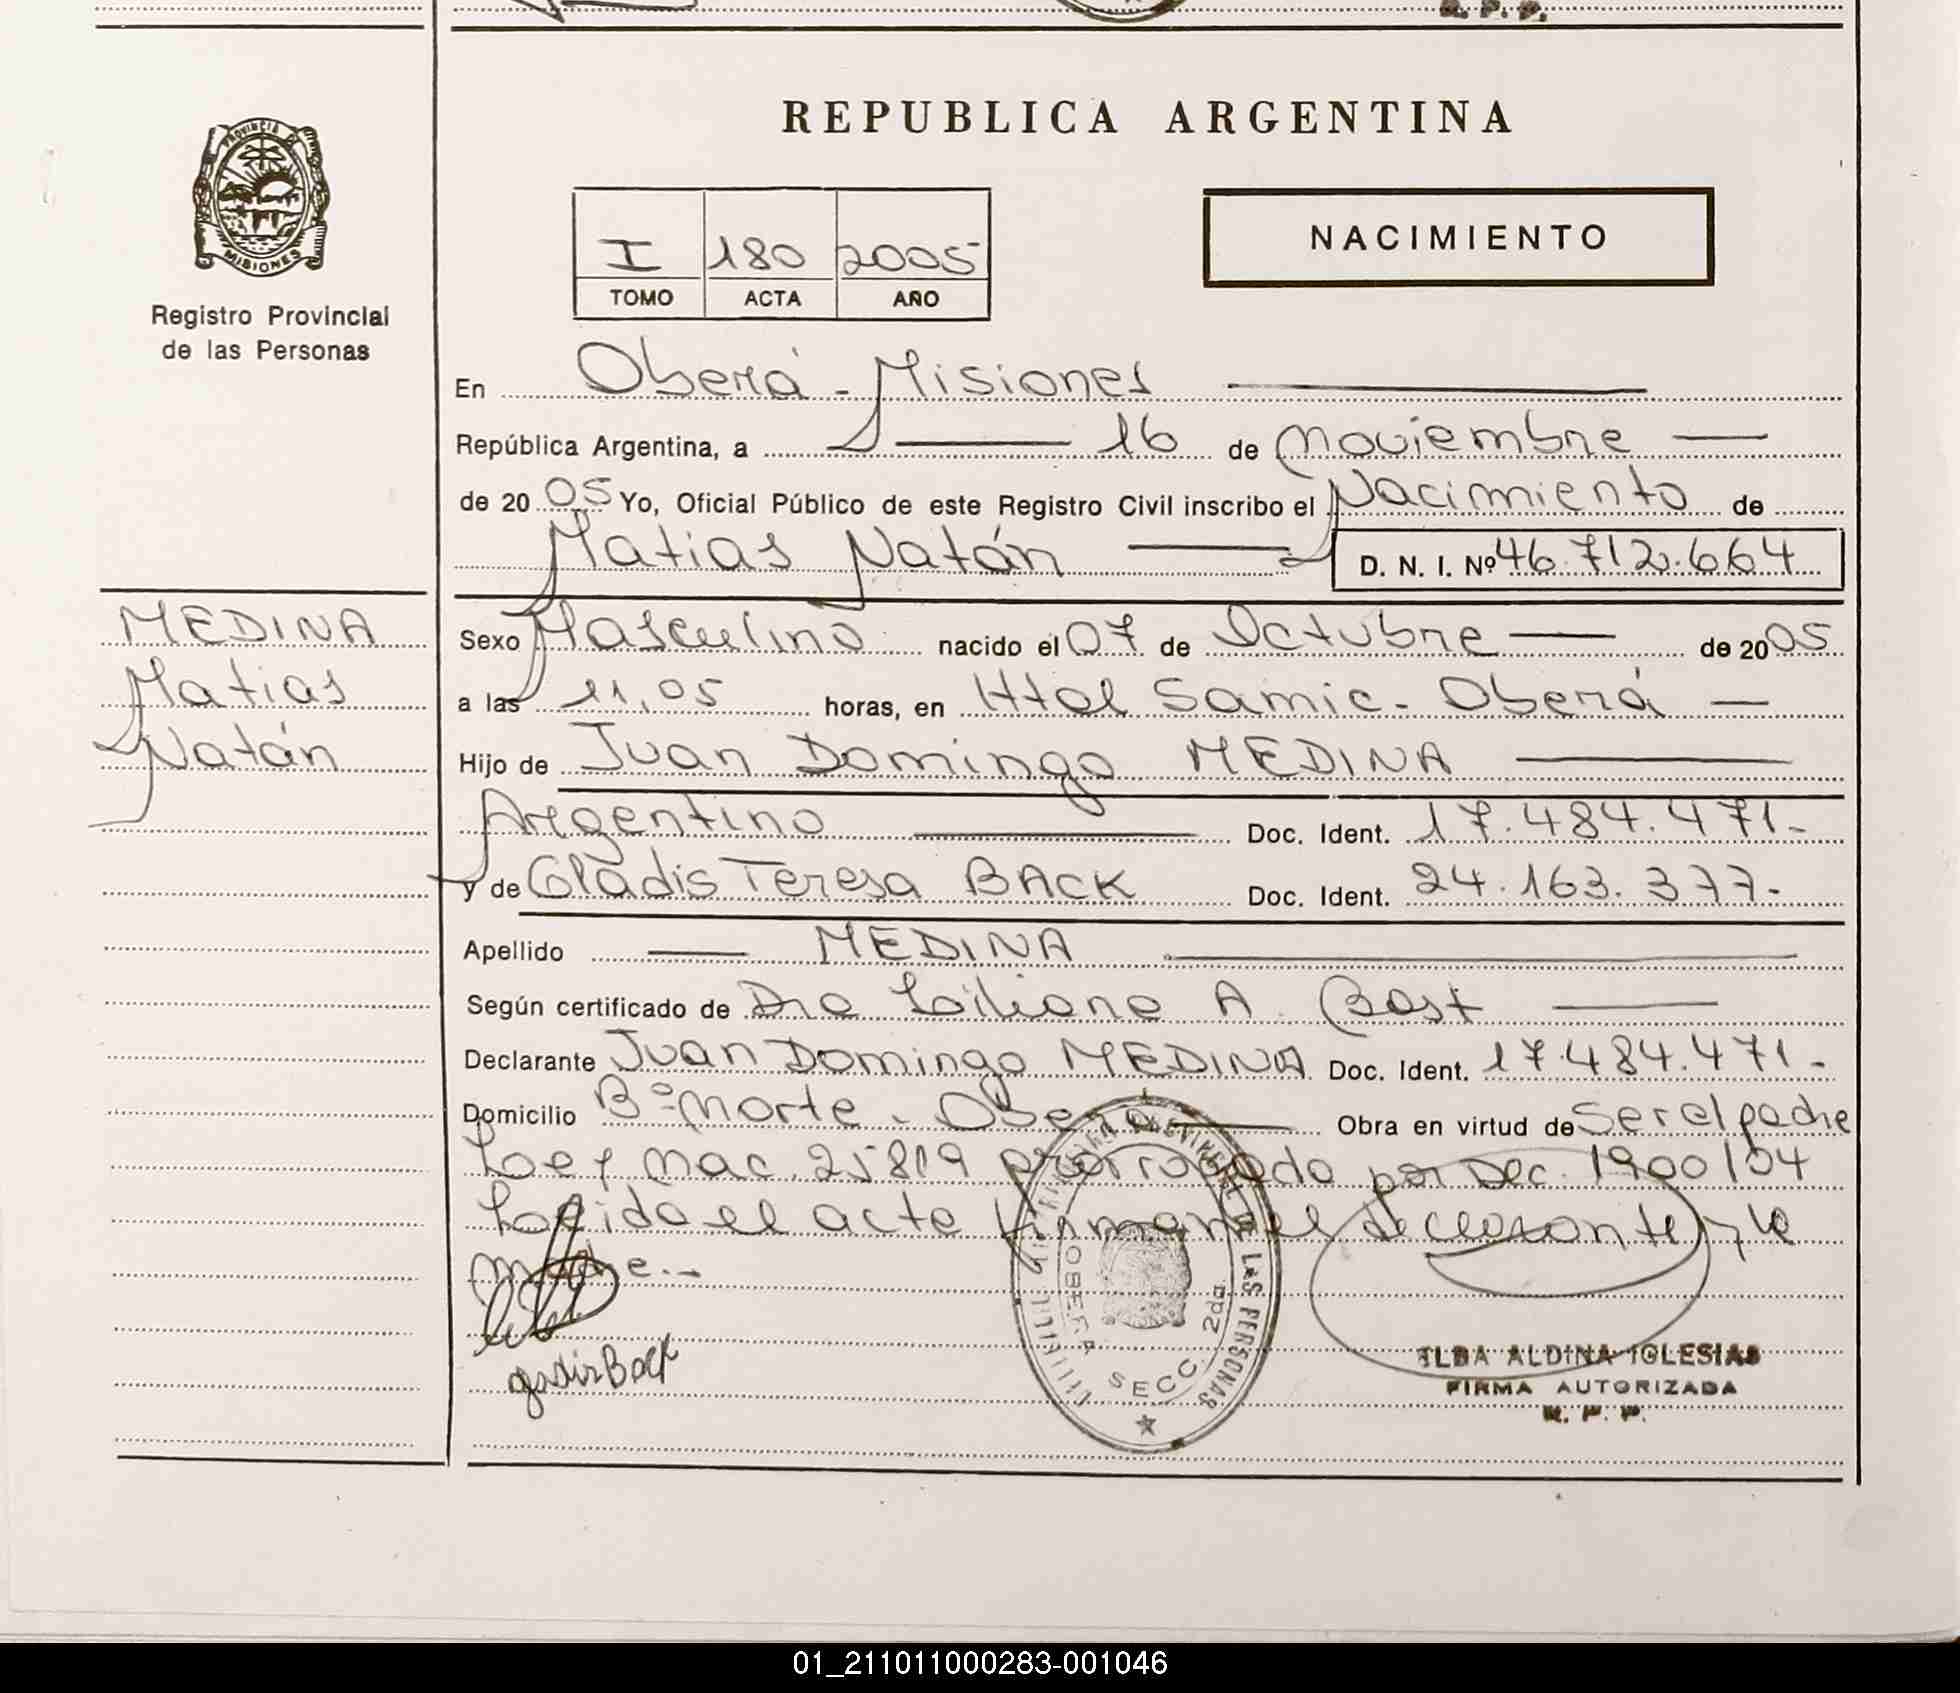 R. P. P.
REPUBLICA ARGENTINA
PROVINCIA DE
MISIONES
Registro Provincial
de las Personas
I 180 2005
TOMO ACTA AÑO
NACIMIENTO
En Oberá - Misiones
República Argentina, a 16 de Noviembre
de 20 05 Yo, Oficial Público de este Registro Civil inscribo el Nacimiento de
Matias Natán D. N. I. Nº 46.712.664
MEDINA
Matias
Natán
Sexo Masculino nacido el 07 de Octubre de 20 05
a las 11,05 horas, en Htal Samic - Oberá
Hijo de Juan Domingo MEDINA
Argentino Doc. Ident. 17.484.471-
y de Gladis Teresa BACK Doc. Ident. 24.163.377-
Apellido MEDINA
Según certificado de Dra Liliana A. Bast
Declarante Juan Domingo MEDINA Doc. Ident. 17.484.471-
Domicilio Bº Norte - Oberá Obra en virtud de Ser el padre
Ley Nac. 25819 prorrogado por Dec. 1900/04
Leida el acta firman el declarante y la
madre.-
Back
PROVINCIAL DE LAS PERSONAS
OBERA SECC. 2da.
ELBA ALDINA IGLESIAS
FIRMA AUTORIZADA
R. P. P.
01_211011000283-001046